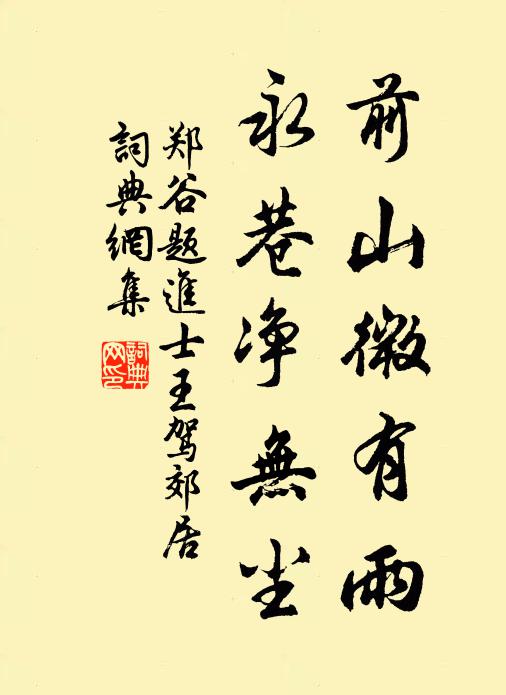 前山微有雨
永巷净無尘
郑谷题進士王驾郊居
詞典網集
詞典網印